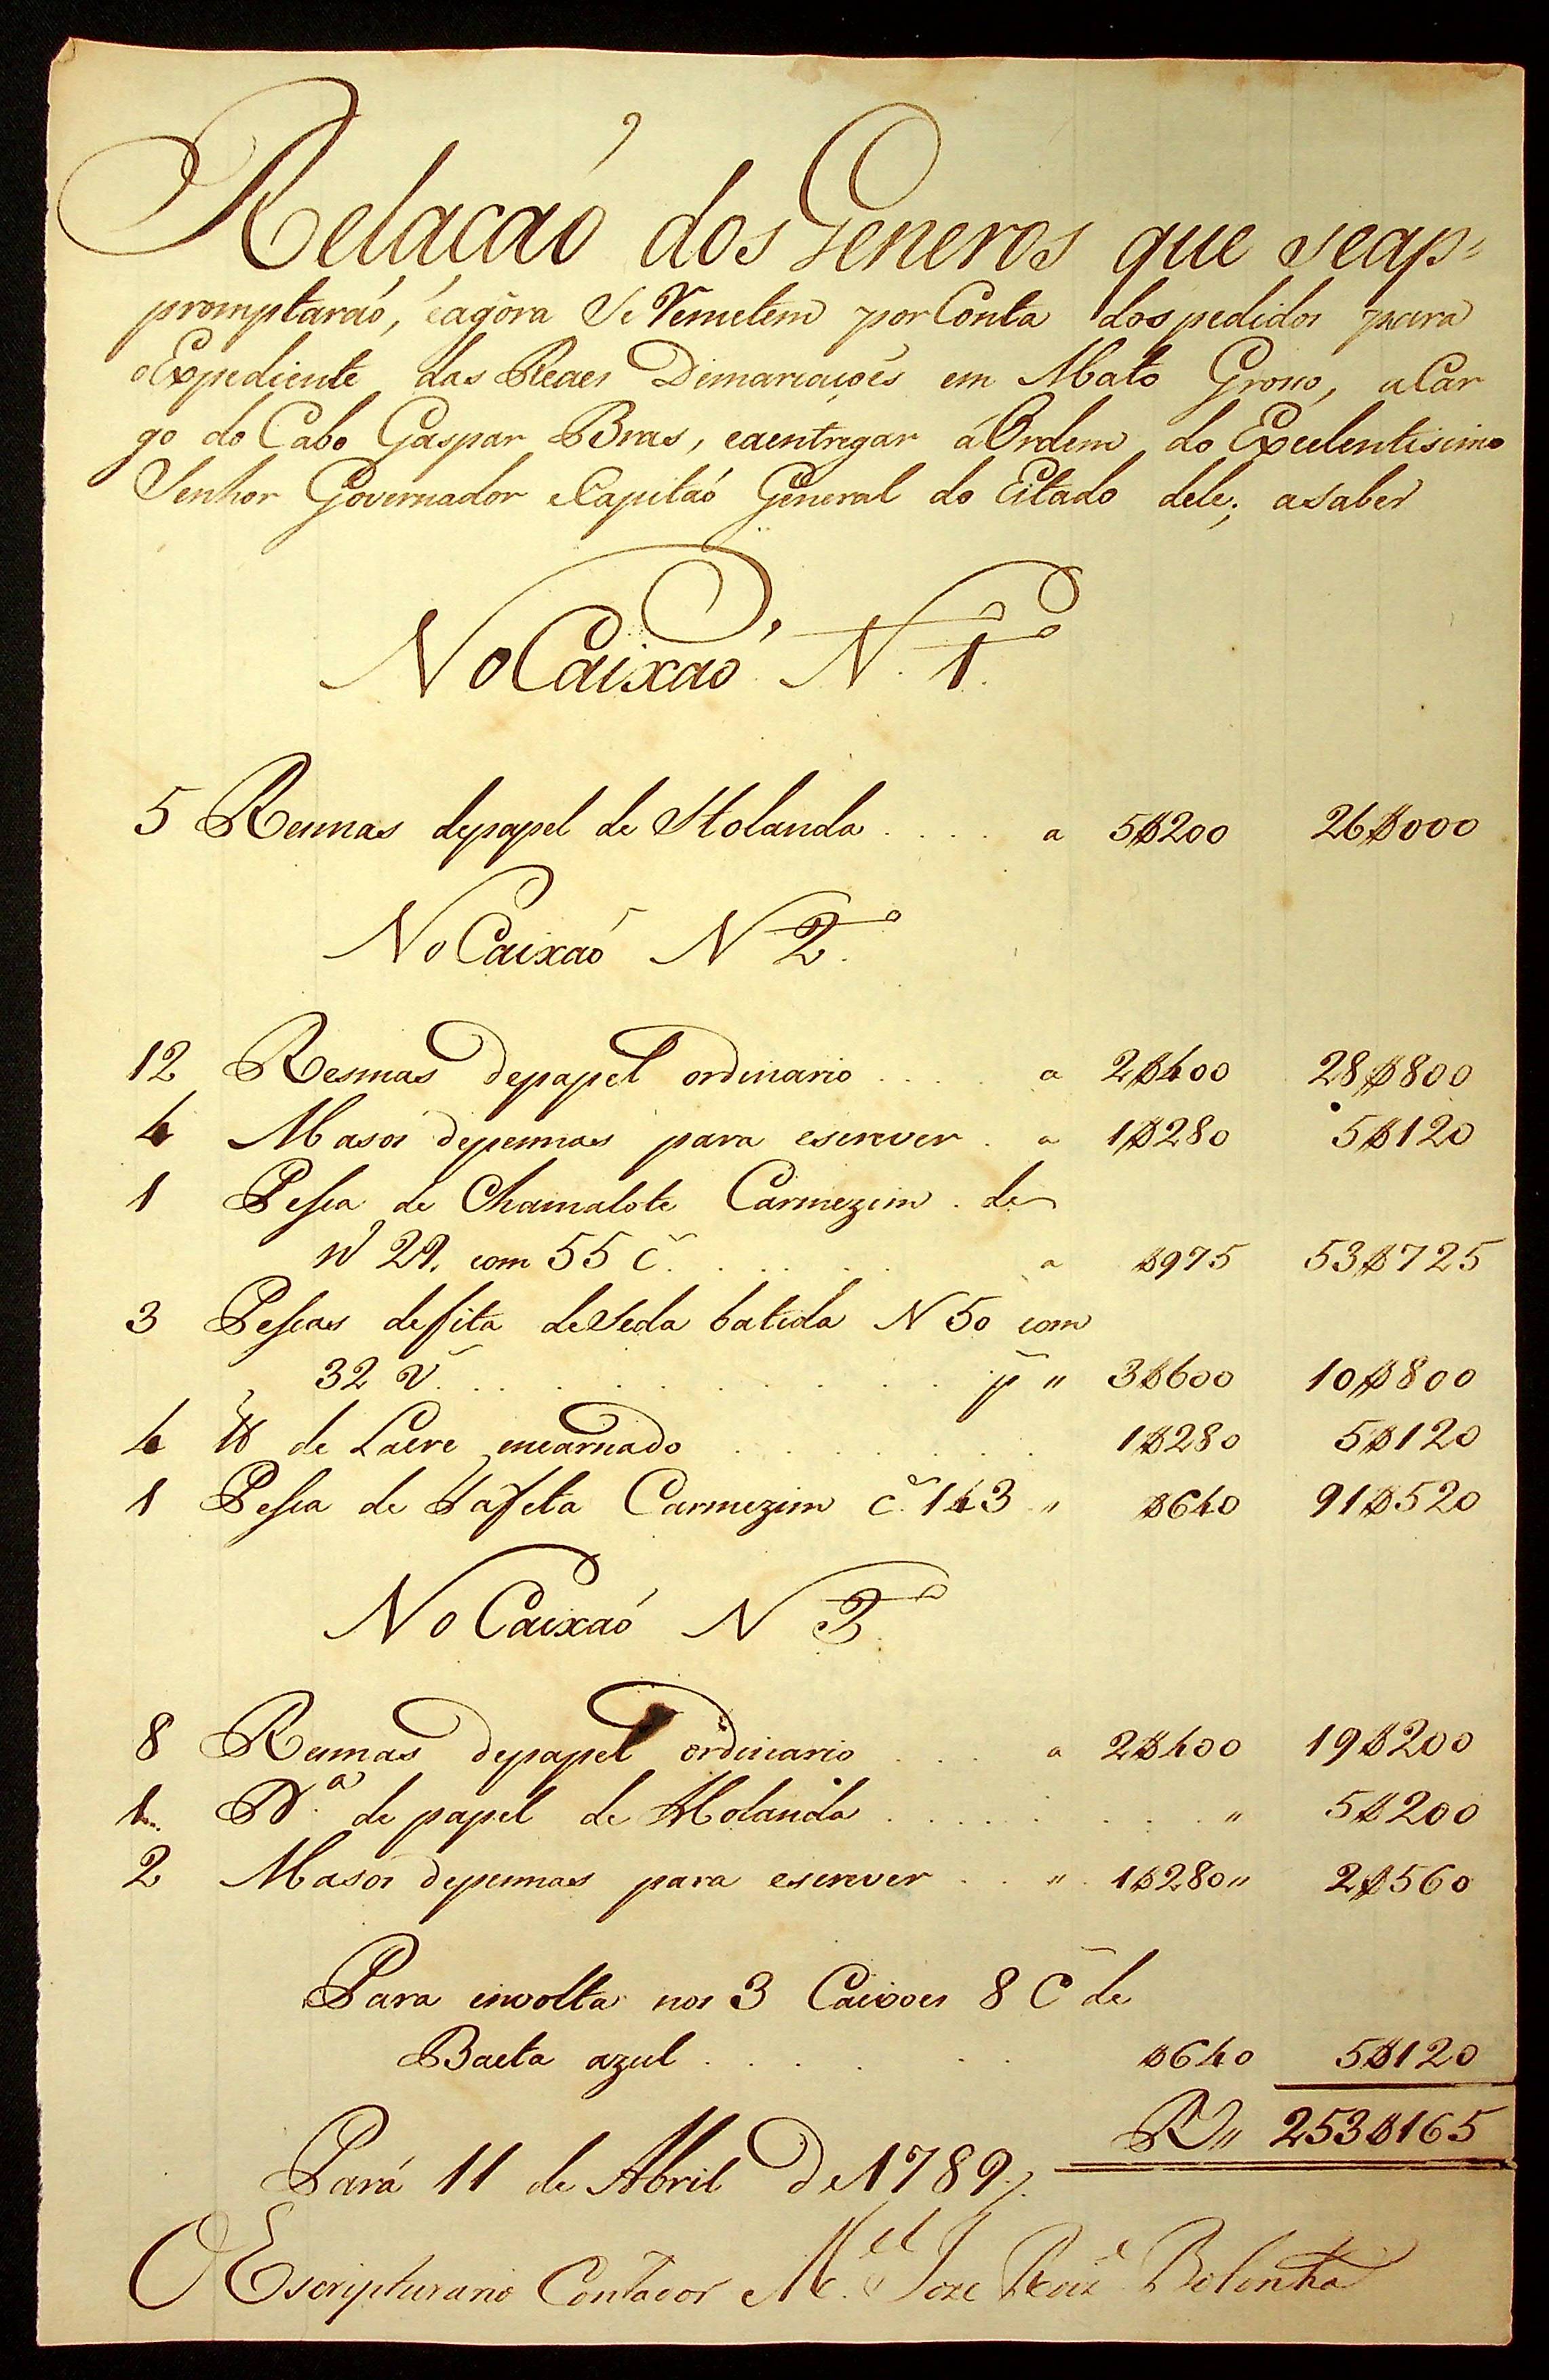 Relacaó dos Generos que seap=
promptaraó, éagóra Se Remetem por Conta dos pedidos para
oExpediente das Reaes Demarcaçoẽs em Mato Groso, aCar
go do Cabo Gaspar Bras, eaentregar áOrdem do Excelentisimo
Senhor Governador eCapitaó General do Estado dele; asaber
No Caixaó N. 1.º
5 Resmas depapel de Holanda . . . . a 5$200 26$000
No Caixaó N 2.º
12 Resmas depapel ordinario . . . . a 2$400 28$800
4 Masos depennas para escrever . a 1$280 5$120
1 Pessa de Chamalote Carmezim . de
Nº 29. com 55 c̃ . . . . . . a $975 53$725
3 Pessas defita deSeda batida N 50 com
32 ṽ . . . . . . . . . . p̃ " 3$600 10$800
4 lb de Lacre encarnado . . . . . . 1$280 5$120
1 Pessa de Tafeta Carmezim c̃. 143 " $640 91$520
No Caixaó N 3.º
8 Resmas depapel ordinario . . . a 2$400 19$200
1 D.ª de papel de Holanda . . . . . . . . " 5$200
2 Masos depennas para escrever . . " 1$280" 2$560
Para involta nos 3 Caixoes 8 c̃ de
Baeta azul . . . . . . $640 5$120
Rs" 253$165
Pará 11 de Abril De 1789 //.
OEscripturario Contador M.el Joze Roiz̃ Bolonha